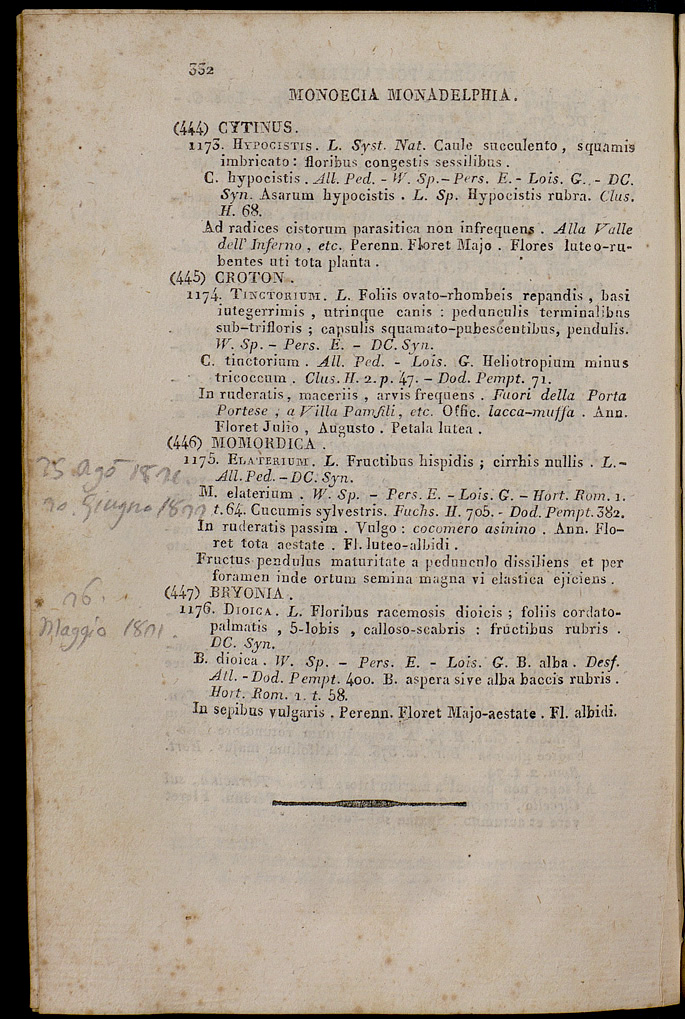 332
MONOECIA MONADELPHIA.
(444) CYTINUS.
1173. HYPOCISTIS. L. Syst. Nat. Caule succulento, squamis
imbricato: floribus congestis sessilibus.
C. hypocistis. All. Ped. - W. Sp. - Pers. E. - Lois. G. - DC.
Syn. Asarum hypocistis. L. Sp. Hypocistis rubra. Clus.
H. 68.
Ad radices cistorum parasitica non infrequens. Alla Valle
dell' Inferno, etc. Perenn. Floret Majo. Flores luteo-ru-
bentes uti tota planta.
(445) CROTON.
1174. TINCTORIUM. L. Foliis ovato-rhombeis repandis, basi
integerrimis, utrinque canis: pedunculis terminalibus
sub-trifloris; capsulis squamato-pubescentibus, pendulis.
W. Sp. - Pers. E. - DC. Syn.
C. tinctorium. All. Ped. - Lois. G. Heliotropium minus
tricoccum. Clus. H. 2. p. 47. - Dod. Pempt. 71.
In ruderatis, maceriis, arvis frequens. Fuori della Porta
Portese, a Villa Pamfili, etc. Offic. lacca-muffa. Ann.
Floret Julio, Augusto. Petala lutea.
(446) MOMORDICA.
1175. ELATERIUM. L. Fructibus hispidis; cirrhis nullis. L. -
All. Ped. - DC. Syn.
M. elaterium. W. Sp. - Pers. E. - Lois. G. - Hort. Rom. 1.
t. 64. Cucumis sylvestris. Fuchs. H. 705. - Dod. Pempt. 382.
In ruderatis passim. Vulgo: cocomero asinino. Ann. Flo-
ret tota aestate. Fl. luteo-albidi.
Fructus pendulus maturitate a pedunculo dissiliens et per
foramen inde ortum semina magna vi elastica ejiciens.
(447) BRYONIA.
1176. DIOICA. L. Floribus racemosis dioicis; foliis cordato-
palmatis, 5-lobis, calloso-scabris: fructibus rubris.
DC. Syn.
B. dioica. W. Sp. - Pers. E. - Lois. G. B. alba. Desf.
Atl. - Dod. Pempt. 400. B. aspera sive alba baccis rubris.
Hort. Rom. 1. t. 58.
In sepibus vulgaris. Perenn. Floret Majo-aestate. Fl. albidi.
Ago
Giugno
Maggio